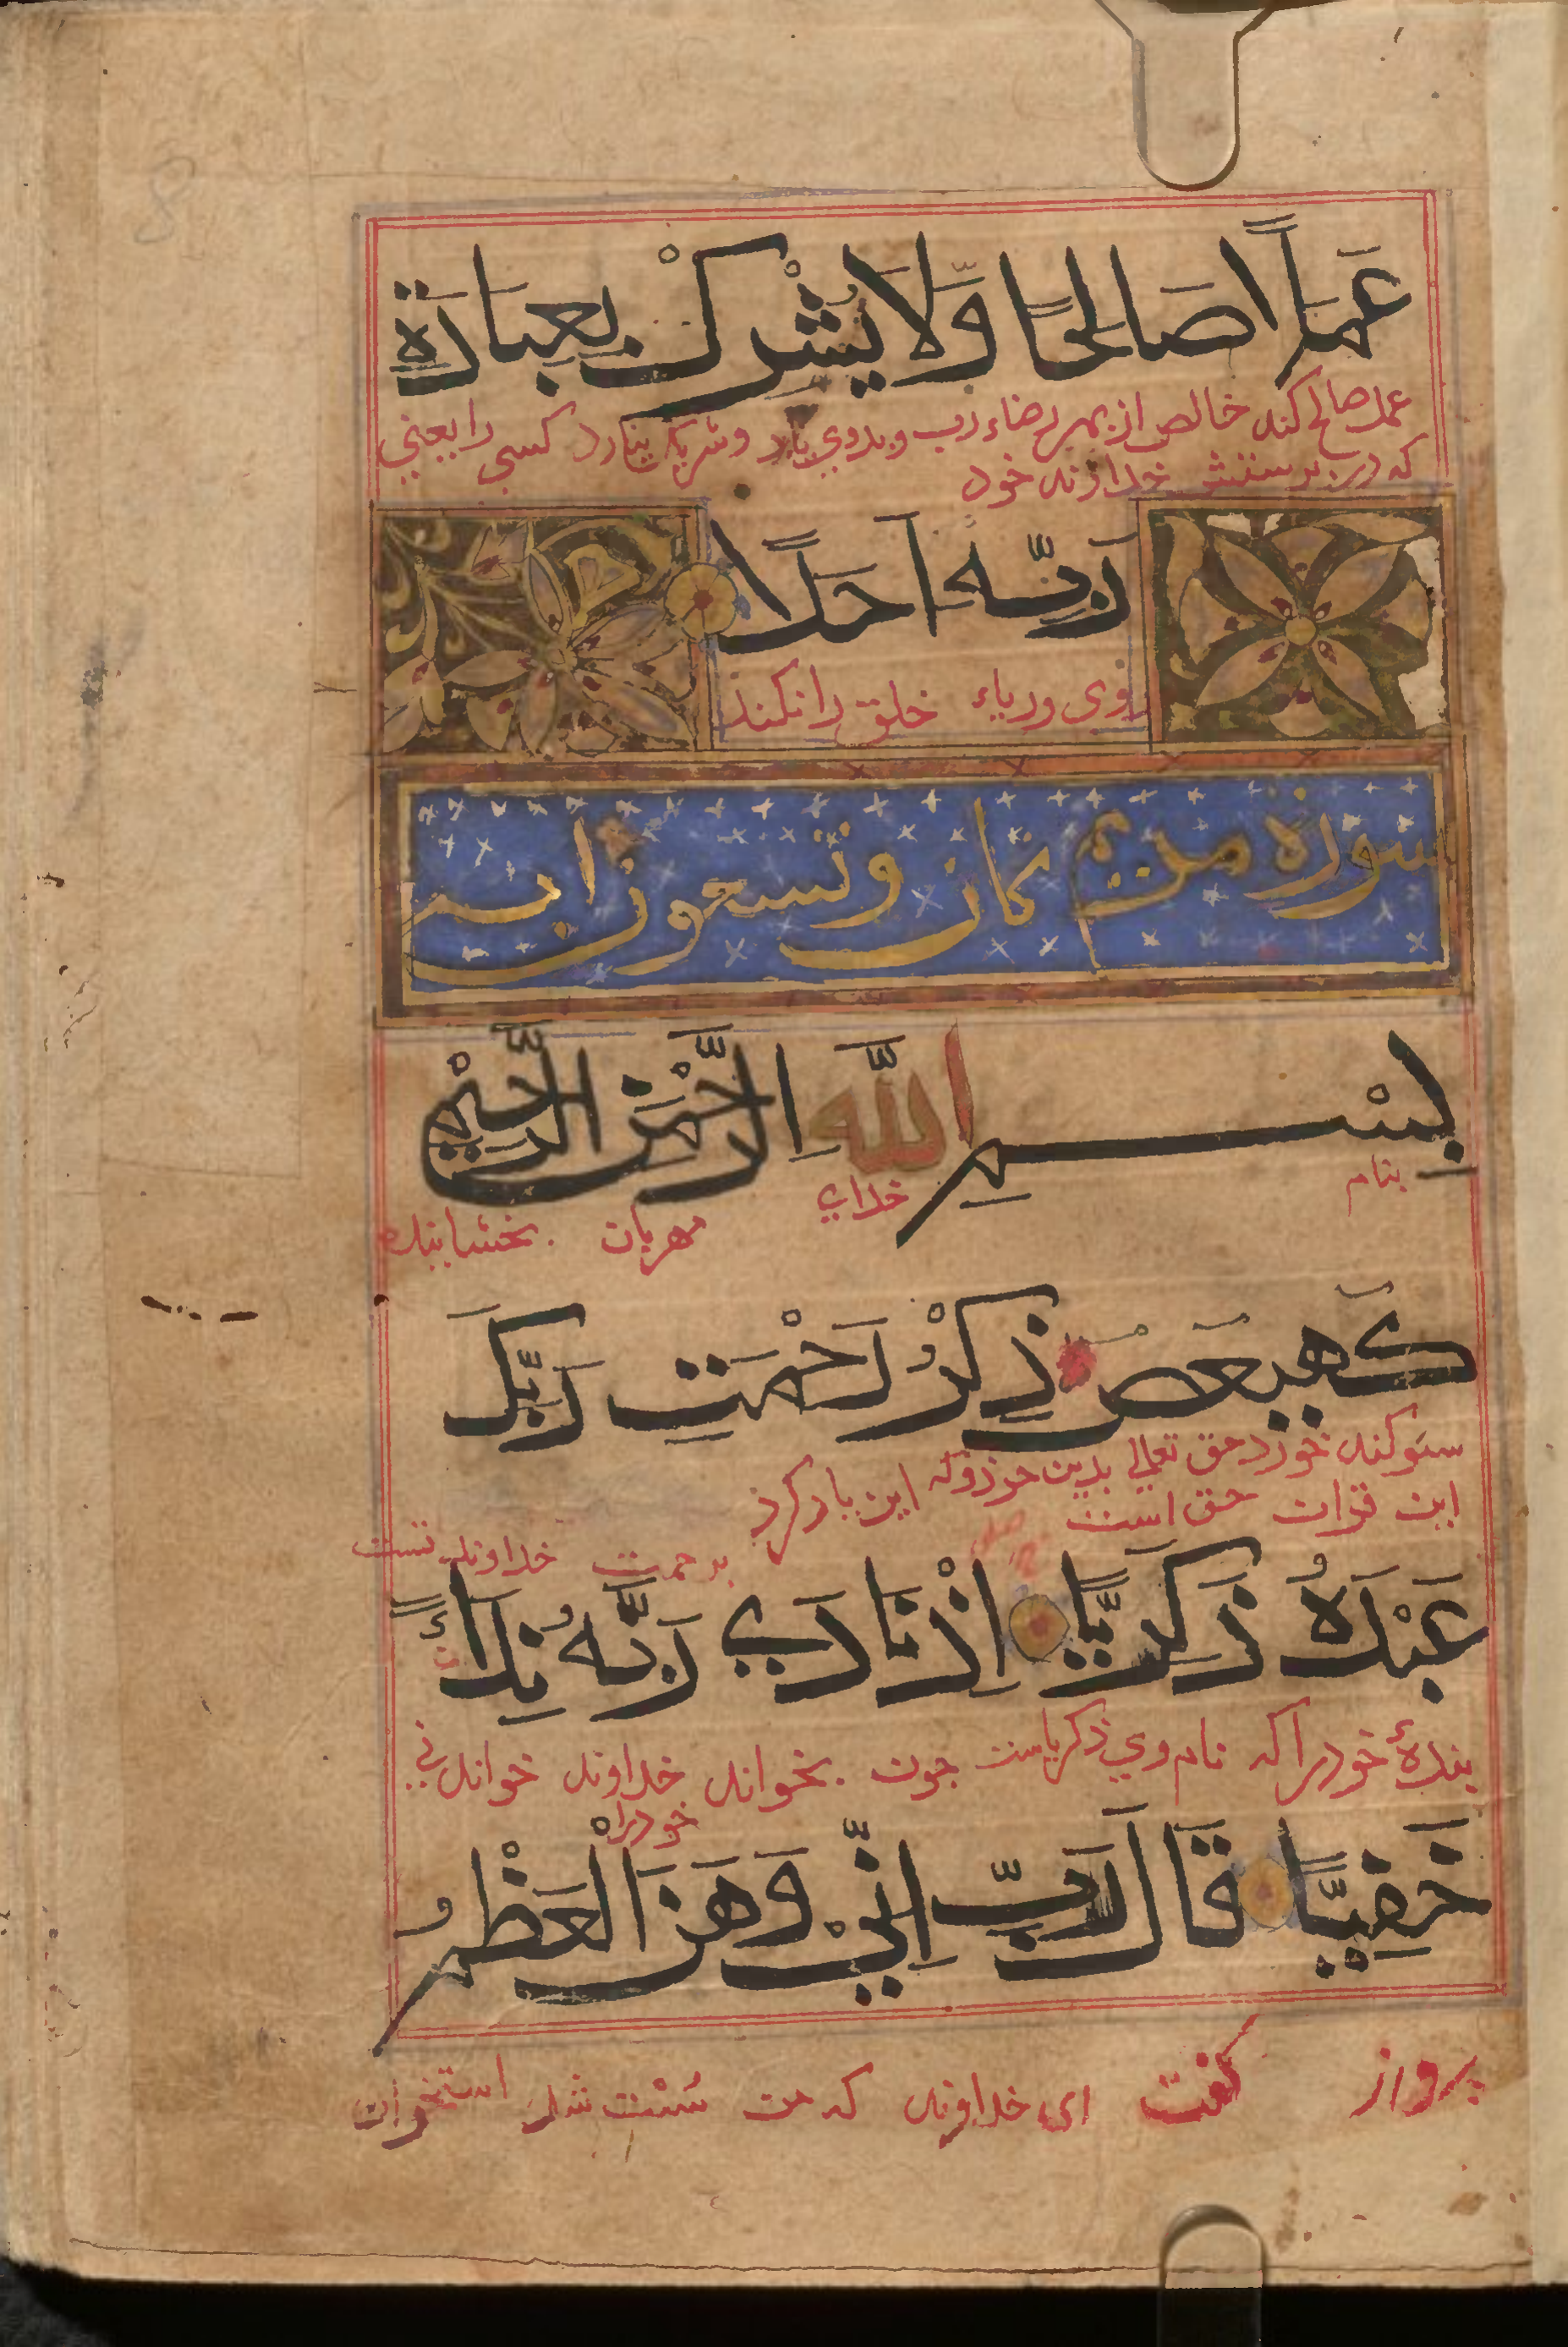 عَمَلًا صَالِحًا وَّلَا يُشْرِكْ بِعِبَادَةِ
عمل صالح کند خالص از بهر رضاء رب و بدوی یار و شریک نیارد کسی را یعنی
که در پرستش خداوند خود
رَبِّهِ اَحَدًا
روی و ریاء خلق را نکند
سورة مريم ثمان وتسعون اية
بِسْمِ اللّٰهِ الرَّحْمٰنِ الرَّحِيْمِ
بنام خدای مهربان بخشاینده
كهيعص ذِكْرُ رَحْمَتِ رَبِّكَ
سوکند خورد حق تعالی بدین حروف که این یاد کرد
این قران حق است
برحمت خداوند تست
عَبْدَهُ زَكَرِيَّا اِذْ نَادٰى رَبَّهُ نِدَاءً
بندهٔ خود را که نام وی ذکریاست چون بخواند خداوند خواندنی
خود را
خَفِيًّا قَالَ رَبِّ اِنِّيْ وَهَنَ الْعَظْمُ
گفت ای خداوند که من سست شد استخوان